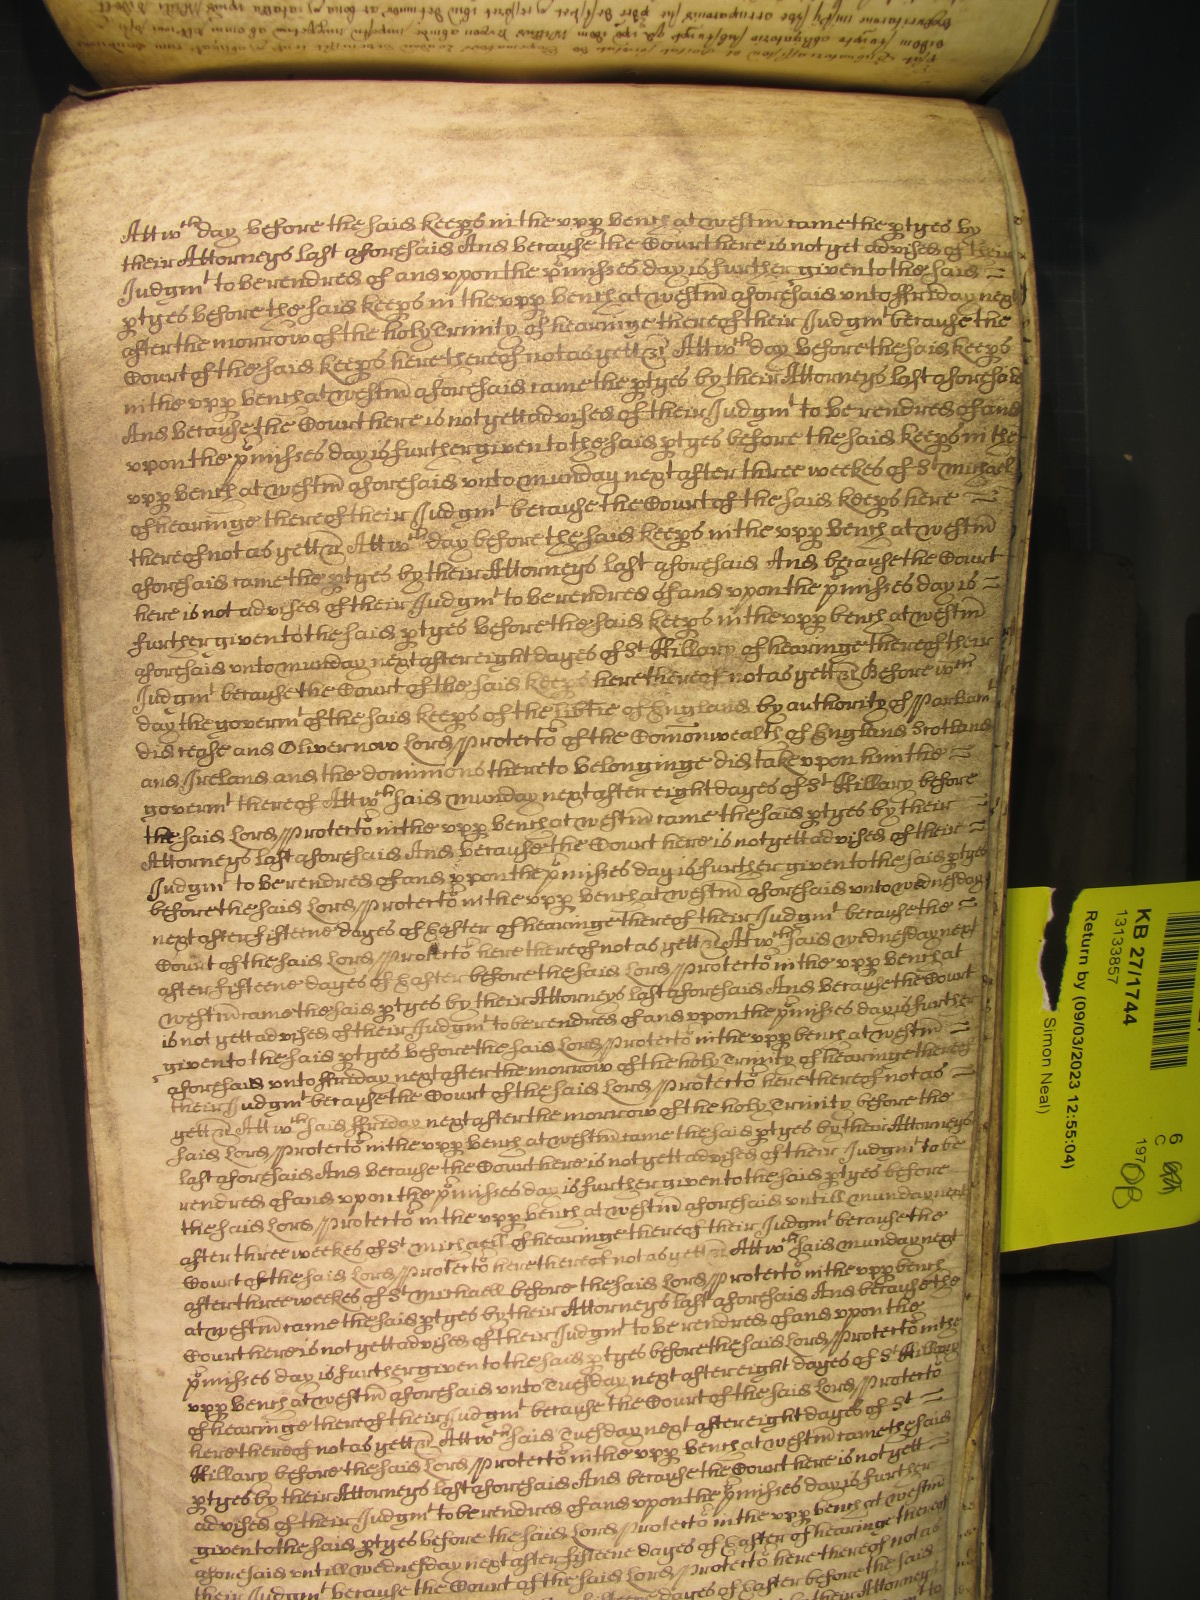 Att wch day before the said keeps in the upp bench at Westm came the ptyes by
their Attorneys last aforesaid And because the Court here is not yet advised of their
Judgmt to be rendred of and uppon the pmisses day is further given to the said
ptyes before the said keeps in the upp bench at Westm aforesaid unto ffriday next
after the morrow of the holy Trinity of hearinge thereof their Judgmt because the
Court of the said keeps here thereof not as yett &c Att wch day before the said keeps
in the upp bench at Westm aforesaid came the ptyes by their Attorneys last aforesaid
And because the Court here is not yett advised of their Judgmt to be rendred of and
uppon the pmisses day is further given to the said ptyes before the said keeps in the
upp bench at Westm aforesaid unto munday next after three weekes of St Michael
of hearinge thereof their Judgmt because the Court of the said keeps here
thereof not as yett &c Att wch day before the said keeps in the upp bench at Westm
aforesaid came the ptyes by their Attorneys last aforesaid And because the Court
here is not advised of their Judgmt to be rendred of and uppon the pmisses day is
further given to the said ptyes before the said keeps in the upp bench at Westm
aforesaid unto munday next after eight dayes of St Hillary of hearinge thereof their
Judgmt because the Court of the said keeps here thereof not as yett &c Before wch
day the governmt of the said keeps of the libtie of England by authority of Parliamt
did cease and Oliver now Lord Protector of the Comonwealth of England Scotland
and Ireland and the dominions thereto belonginge did take upon him the
governmt thereof Att wch said munday next after eight dayes of St Hillary before
the said Lord Protector in the upp bench at Westm came the said ptyes by their
Attorneys last aforesaid And because the Court here is not yett advised of their
Judgmt to be rendred of and uppon the pmisses day is further given to the said ptyes
before the said Lord Protector in the upp bench at Westm aforesaid unto wednesday
next after fifteene dayes of Easter of hearinge thereof their Judgmt because the
Court of the said Lord Protector here thereof not as yett &c Att wch said wednesday next
after fifteene dayes of Easter before the said Lord Protector in the upp bench at
Westm came the said ptyes by their Attorneys last aforesaid And because the Court
is not yett advised of their Judgmt to be rendred of and uppon the pmisses day is further
given to the said ptyes before the said Lord Protector in the upp bench at Westm
aforesaid unto ffriday next after the morrow of the holy Trinity of hearinge thereof
their Judgmt because the Court of the said Lord Protector here thereof not as
yett &c Att wch said ffriday next after the morrow of the holy Trinity before the
said Lord Protector in the upp bench at Westm came the said ptyes by their Attorneys
last aforesaid And because the Court here is not yett advised of their Judgmt to be
rendred of and uppon the pmisses day is further given to the said ptyes before
the said Lord Protector in the upp bench at Westm aforesaid untill munday next
after three weekes of St Michaell of hearinge thereof their Judgmt because the
Court of the said Lord Protector here thereof not as yett &c Att wch said munday next
after three weekes of St Michaell before the said Lord Protector in the upp bench
at Westm came the said ptyes by their Attorneys last aforesaid And because the
Court here is not yett advised of their Judgmt to be rendred of and uppon the
pmisses day is further given to the said ptyes before the said Lord Protector in the
upp bench at Westm aforesaid unto Tuesday next after eight dayes of St Hillary
of hearinge thereof their Judgmt because the Court of the said Lord Protector
here thereof not as yett &c Att wch said Tuesday next after eight dayes of St
Hillary before the said Lord Protector in the upp bench at Westm came the said
ptyes by their Attorneys last aforesaid And because the Court here is not yett
advised of their Judgmt to be rendred of and uppon the pmisses day is further
given to the said ptyes before the said Lord Protector in the upp bench at Westm
aforesaid untill wednesday next after fifteene dayes of Easter of hearinge thereof
their Judgmt because the Court of the said Lord Protector here thereof not as
fifteene dayes of Easter before the said
their Attorneys
KB 27/1744
13133857
Return by (09/03/2023 12:55:04)
Simon Neal)
6
C
197